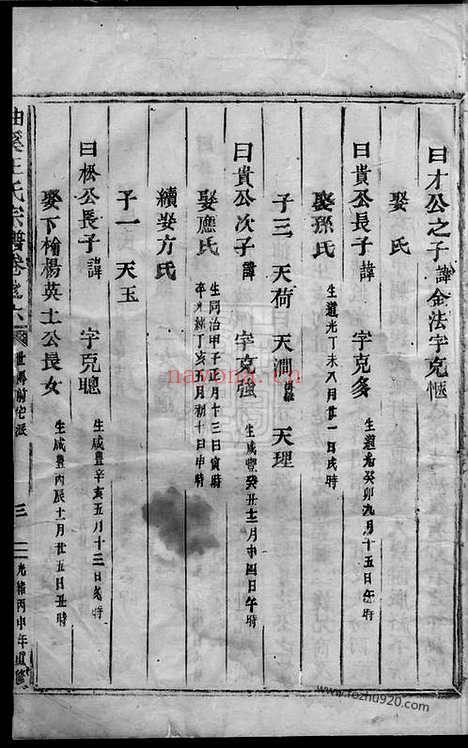 曰才公之子諱金法字克愜
娶 氏
曰貴公長子諱 字克多 生道光癸卯九月十五日午時
娶孫氏 生道光丁未八月廿一日戌時
子三 天荷 天澗 天理
曰貴公次子諱 字克強 生咸豐癸丑十二月廿四日午時
娶應氏 生同治甲子正月十三日寅時 卒光緒丁亥五月初十日申時
續娶方氏
子一 天玉
曰松公長子諱 字克聰 生咸豐辛亥五月十三日 時
娶下楊英士公長女 生咸豐丙辰十一月廿五日丑時
王氏宗譜卷 六 世 前宅派 三 光緒丙申年重修
navona.cn
www.fozhu920.com